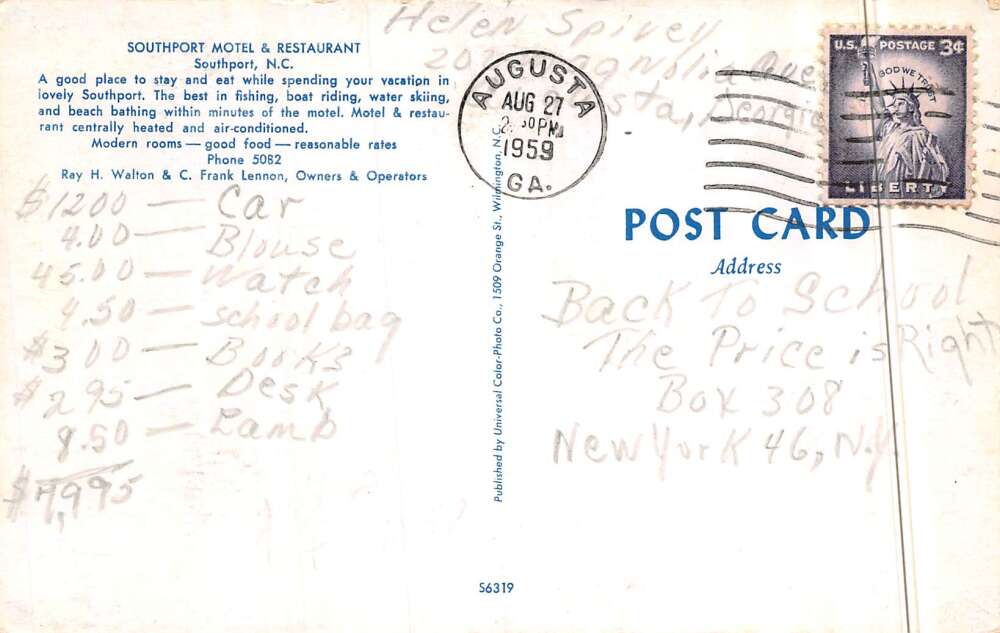 Helen Spivey
20 Magnolia Ave
Augusta, Georgia
SOUTHPORT MOTEL & RESTAURANT
Southport, N.C.
A good place to stay and eat while spending your vacation in
lovely Southport. The best in fishing, boat riding, water skiing,
and beach bathing within minutes of the motel. Motel & restau-
rant centrally heated and air-conditioned.
Modern rooms — good food — reasonable rates
Phone 5082
Ray H. Walton & C. Frank Lennon, Owners & Operators
AUGUSTA
AUG 27
PM
1959
GA.
U.S. POSTAGE 3¢
IN GOD WE TRUST
LIBERTY
$1200 — Car
4.00 — Blouse
45.00 — Watch
4.50 — school bag
$300 — Books
$295 — Desk
8.50 — Lamb
$1,995
Published by Universal Color-Photo Co., 1509 Orange St., Wilmington, N.C.
POST CARD
Address
Back To School
The Price is Right
Box 308
New York 46, N.Y.
S6319